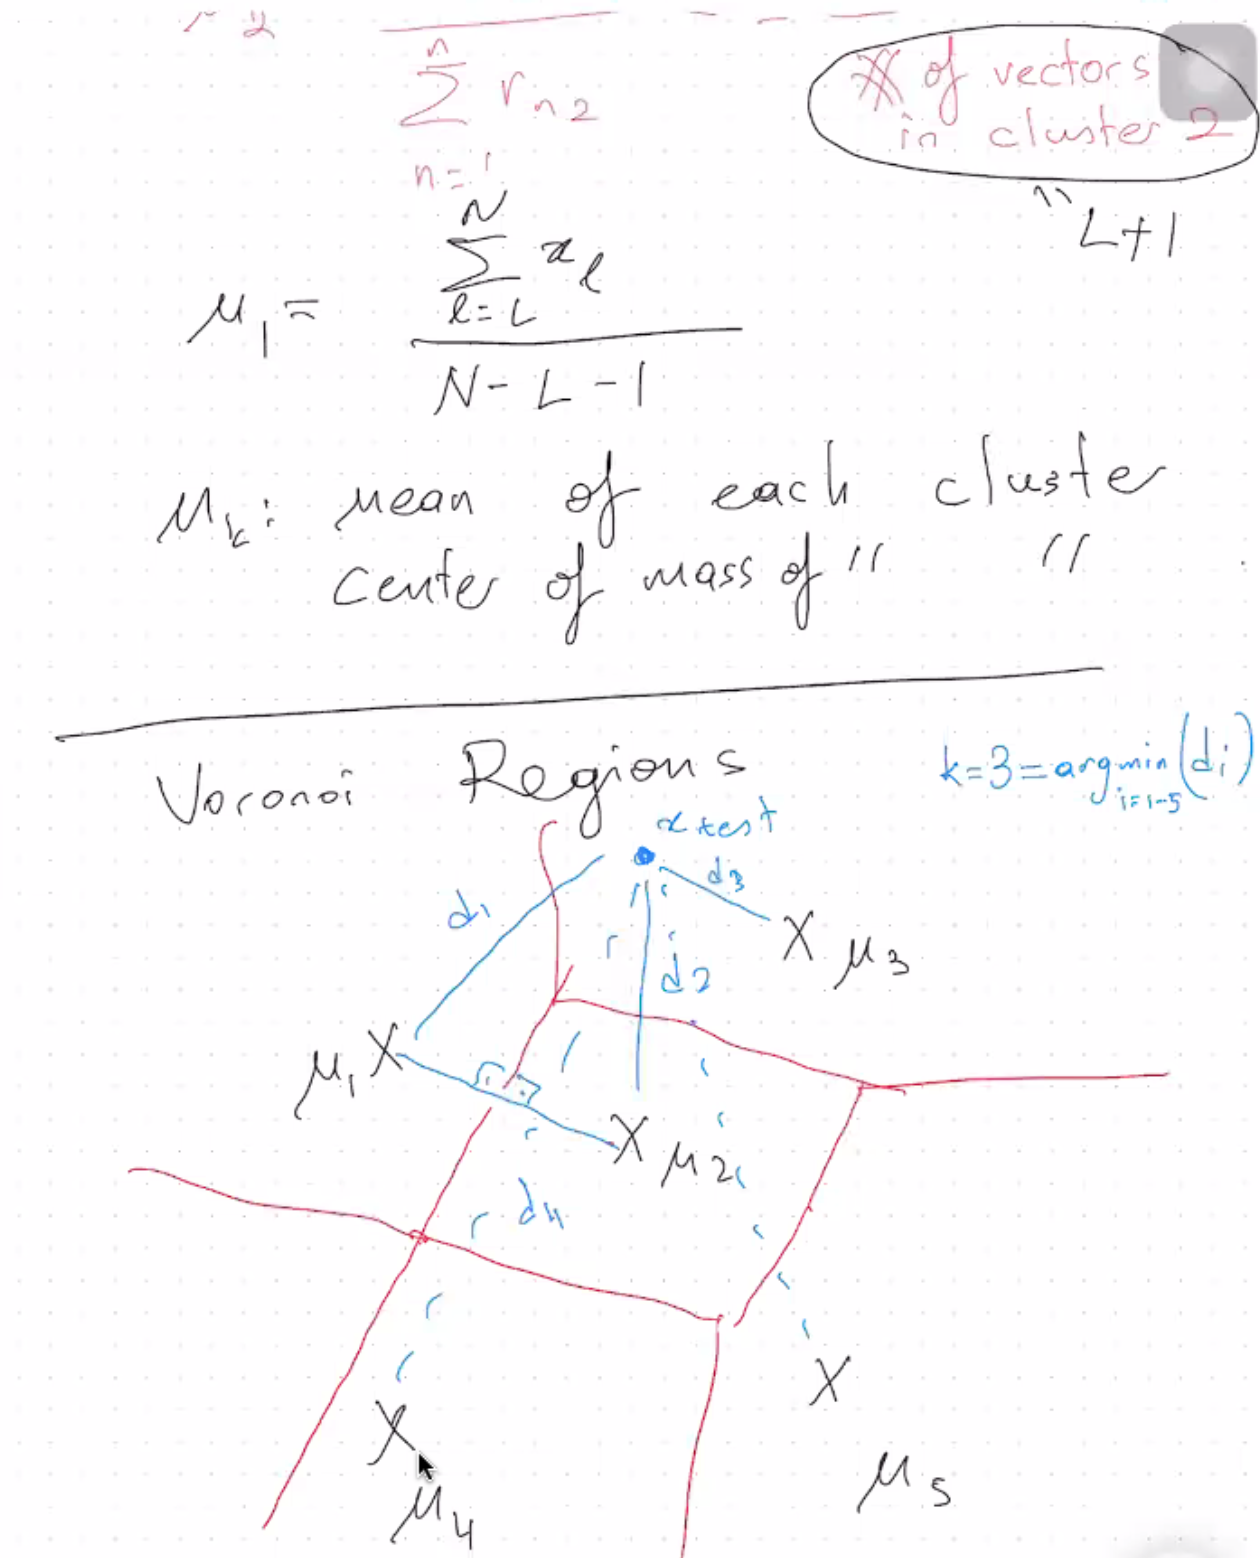 μ2
n
∑ r n2
n=1
# of vectors
in cluster 2
" L+1
N
∑ x l
l=L
μ1 =
N-L-1
μk: mean of each cluster
center of mass of " "
Voronoi Regions
k=3=argmin(di)
i=1-5
x test
d1
d3
d2
X μ3
μ1 X
X μ2
d4
X
X
μ5
μ4